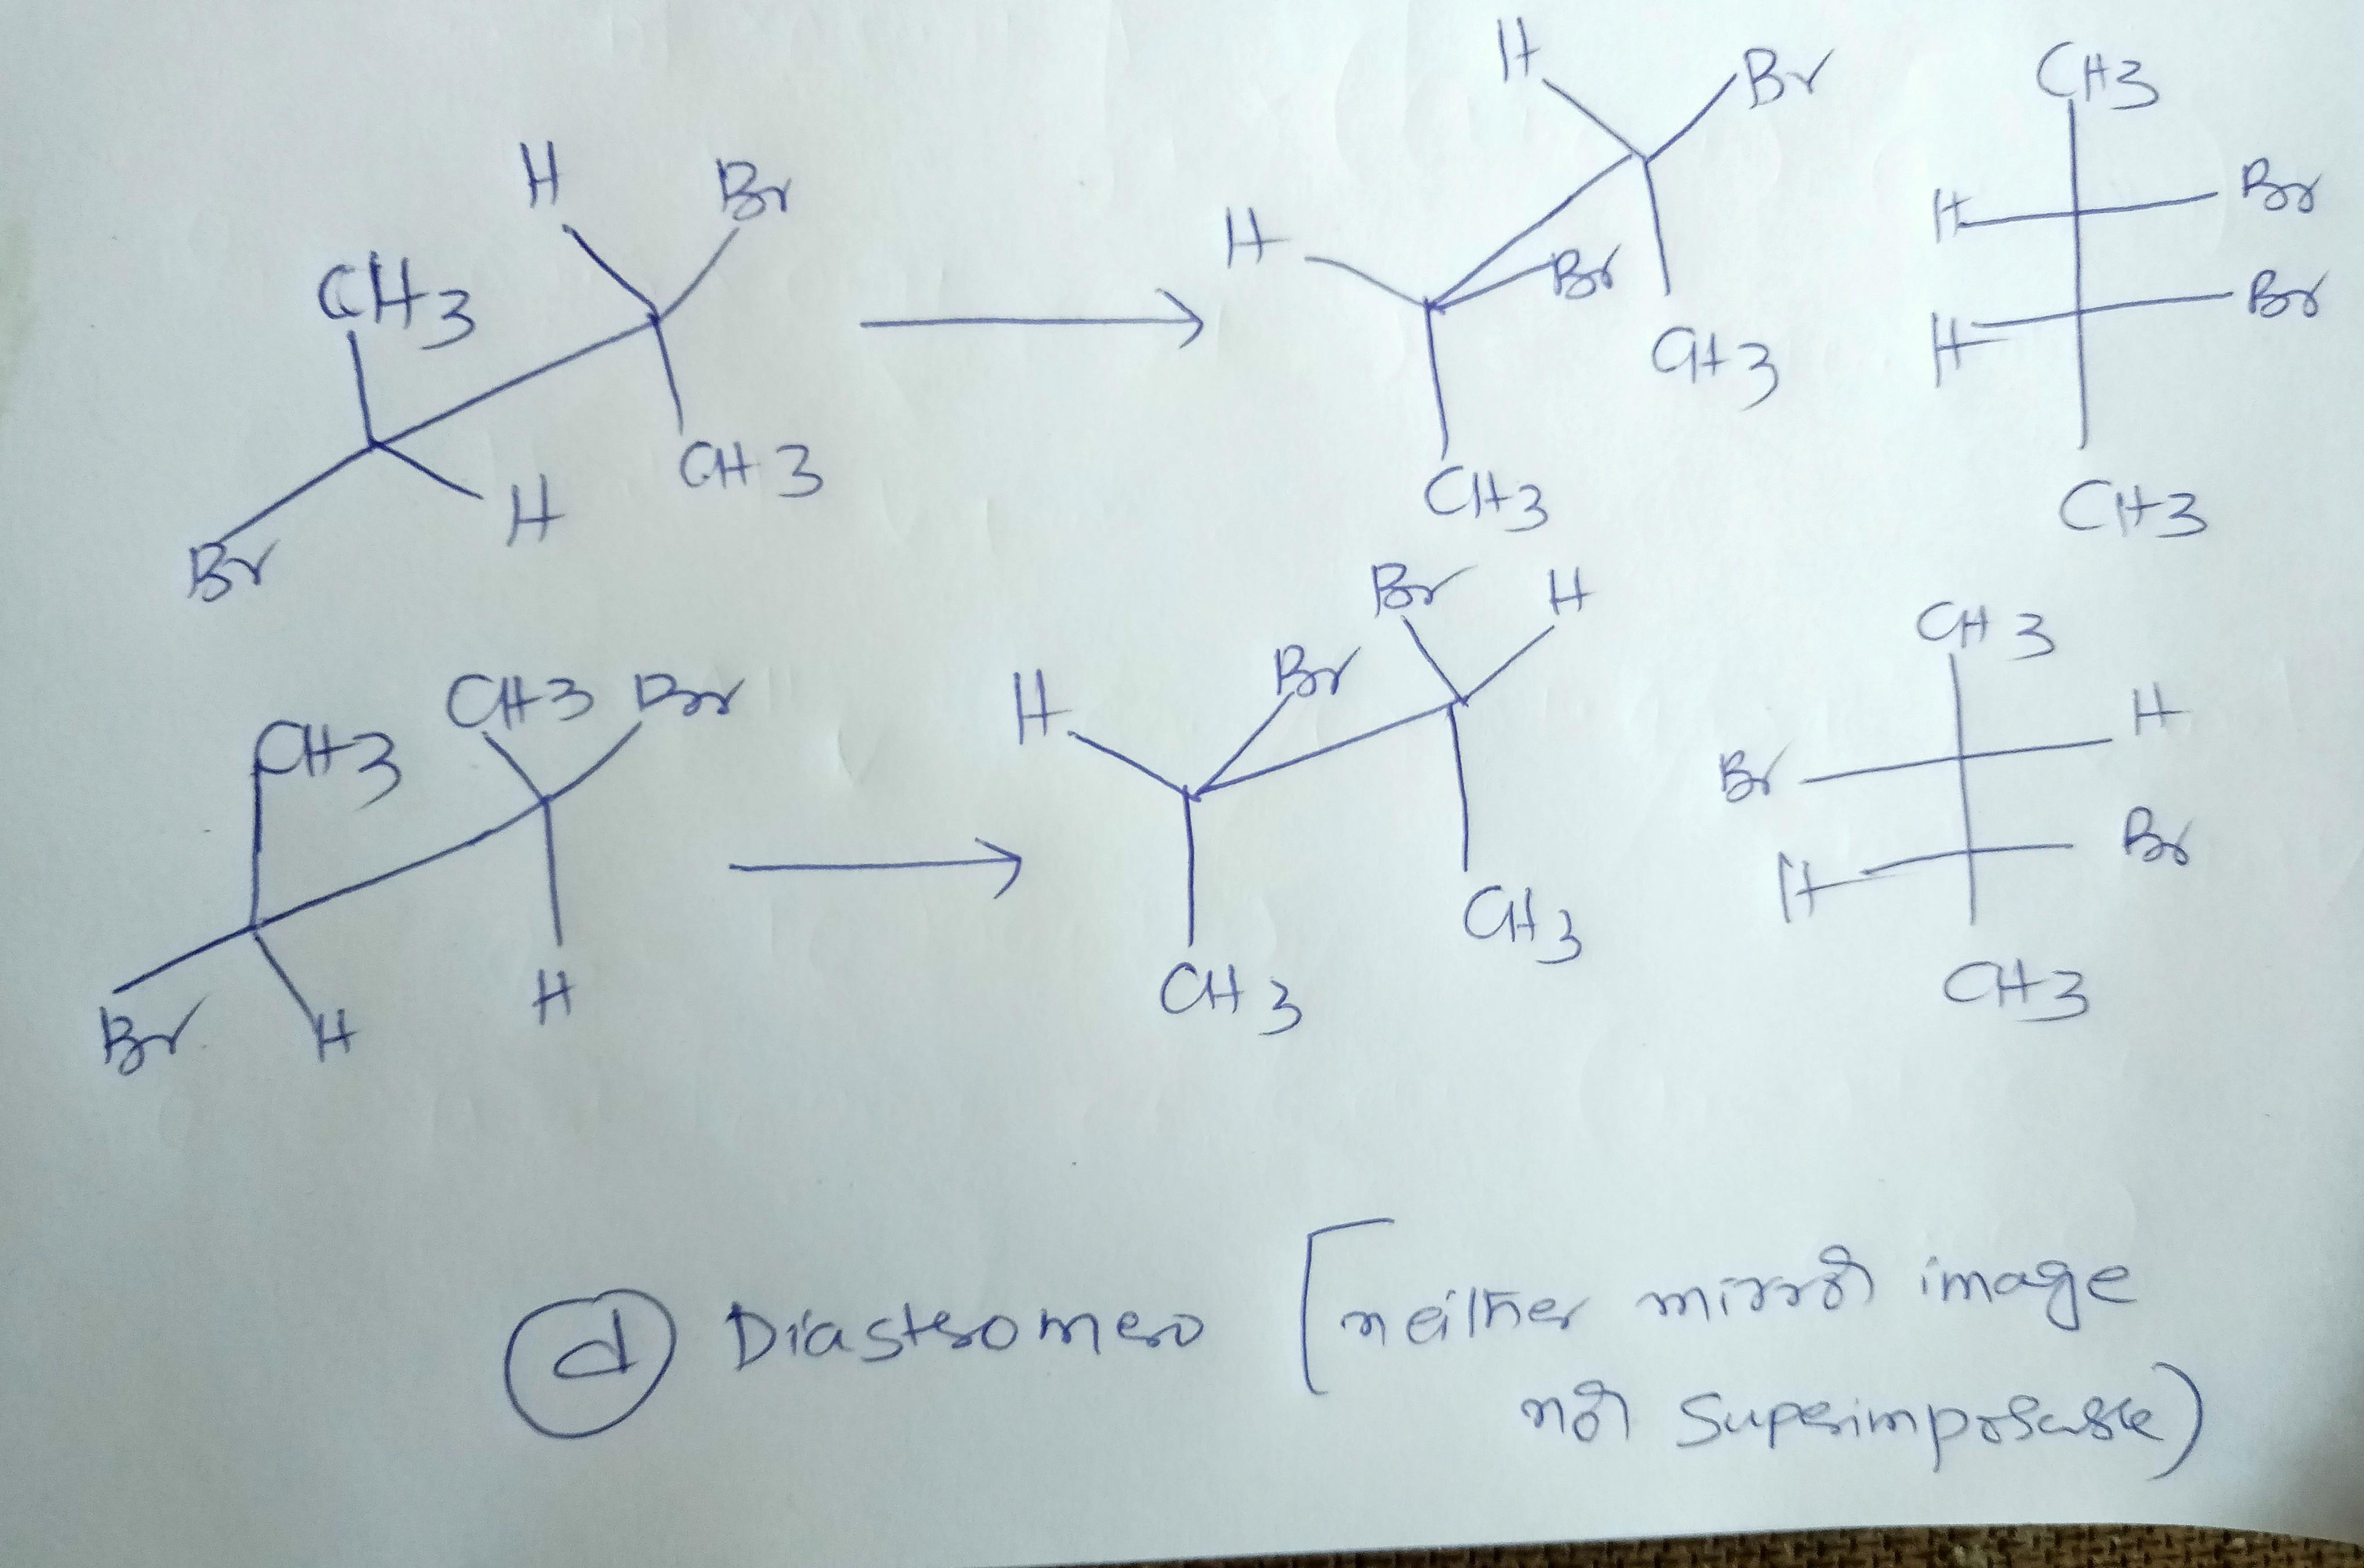 H Br
CH3
Br H CH3
H Br
H Br
CH3
CH3
CH3
H Br
H Br
CH3
CH3 CH3 Br
Br H H
Br H
H Br
CH3
CH3
CH3
Br H
H Br
CH3
d Diastromers [neither mirror image
nor superimposable)